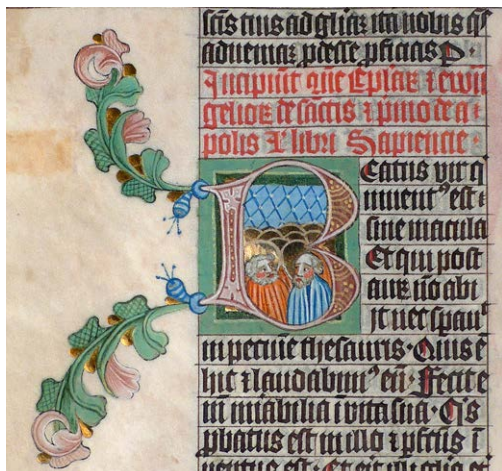 sc̄is tuis ad gl̄iaꝫ ita nobis q̄s
ad veniaꝫ ꝓdesse ꝑficias P.
Incipiūt que Ep̄laꝝ ⁊ ewā
gelioꝝ de sanctis ⁊ pͥmo de a
polis ⁊ libri Sapiencie.
Beatus vir q
inuentꝰ est
sine macula
Et qui post
auꝝ nō abi
it nec spau
in pecūie thesauris. Quis ē
hic ⁊ laudabimꝰ eū. Fecit e
ni mirabilia ī vita sua. Qͥs
ꝓbatus est in illo ⁊ ꝑfctus ē